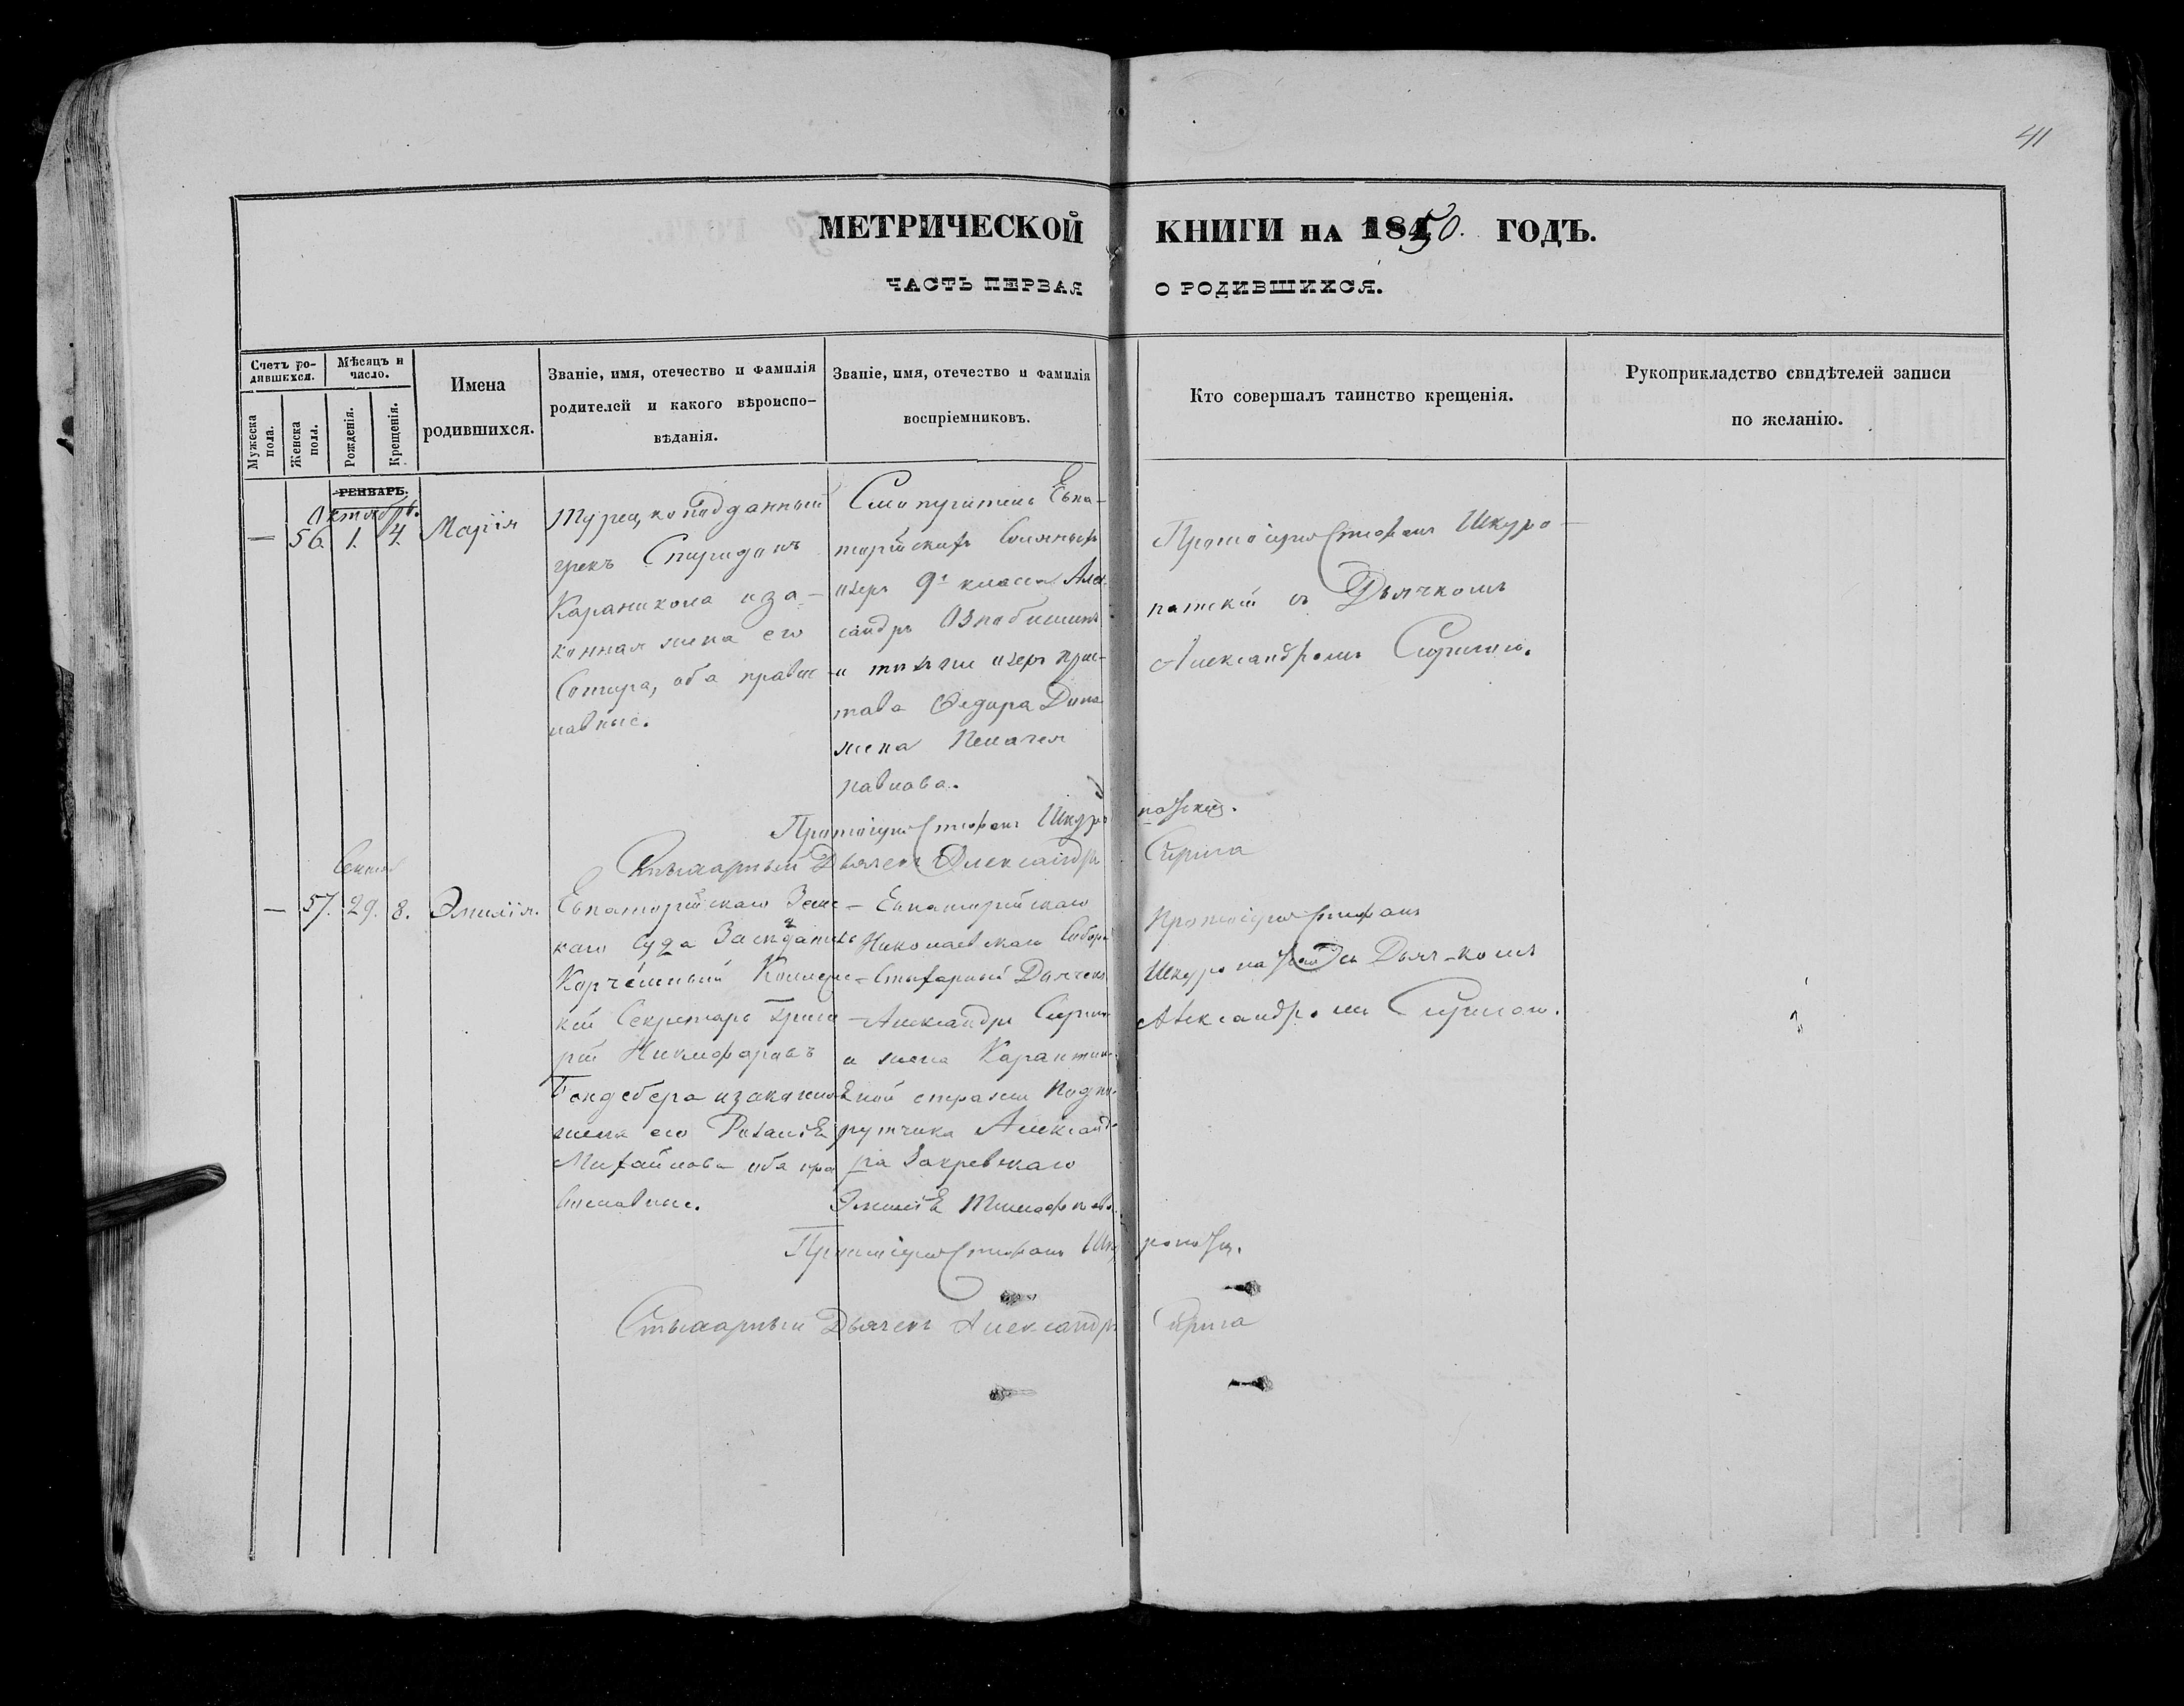 41
МЕТРИЧЕСКОЙ КНИГИ НА 1850. ГОДЪ.
ЧАСТЬ ПЕРВАЯ О РОДИВШИХСЯ.
Счетъ ро-
дившихся.
Мужеска пола.
Женска пола.
Мѣсяцъ и
число.
Рожденія.
Крещенія.
Имена
родившихся.
Званіе, имя, отечество и фамилія
родителей и какого вѣроиспо-
вѣданія.
Званіе, имя, отечество и фамилія
воспріемниковъ.
Кто совершалъ таинство крещенія.
Рукоприкладство свидѣтелей записи
по желанію.
ГЕНВАРЬ.
Октябрь.
— 56. 1. 4. Марія
Турецкоподданный
грекъ Спиридонъ
Караникола и за-
конная жена его
Сотира, оба правос
лавные.
Смотритель Евпа-
торійскихъ Соляныхъ
озеръ 9г класса Алек
сандръ Ознобишинъ
и тѣхъ же озеръ прис-
тава Федора
жена Пелагея
павлова.
Протоіерей Стефанъ Шкуро-
патскій съ Дьячкомъ
Александромъ Сиригою.
Протоіерей Стефанъ Шкуро патскій.
Стихарный Дьячекъ Александръ Сирига
Сентяб
— 57. 29. 8. Эмилія.
ЕвпаторійскагоЗемс-
каго Суда Засѣдатель
Корчемный Коллежс-
кій Секретарь Григо
рій Никифоровъ
Гендебера и законно
жена его Розалія
Михайлова оба пра
вославные.
Евпаторійскаго
Николаевскаго Собора
Стихарный Дьячекъ
Александръ Сирига
и жена Карантин-
ной стражи Подпо-
рутчика Александ-
ра Закревскаго
Эмилія
Протоіерей Стефанъ
Шкуропатскій съ Дьяч-комъ
Александромъ Сиригою.
Протоіерей Стефанъ Шку ропатскій.
Стихарный Дьячекъ Александръ Сирига